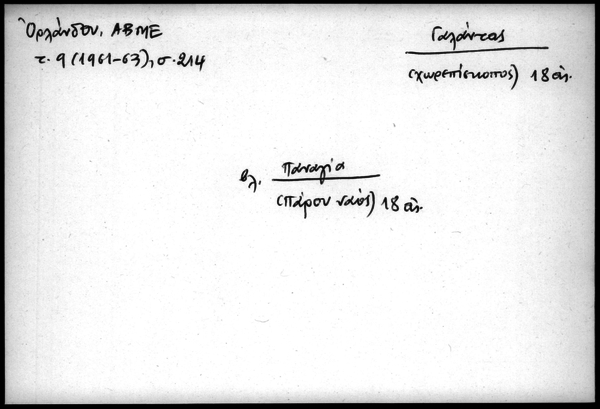 Ὀρλάνδου, ΑΒΜΕ
τ. 9 (1961-63), σ. 214
Γαλάντας
(χωρεπίσκοπος) 18 αἰ.
βλ. Παναγία
(Πάρου ναός) 18 αἰ.